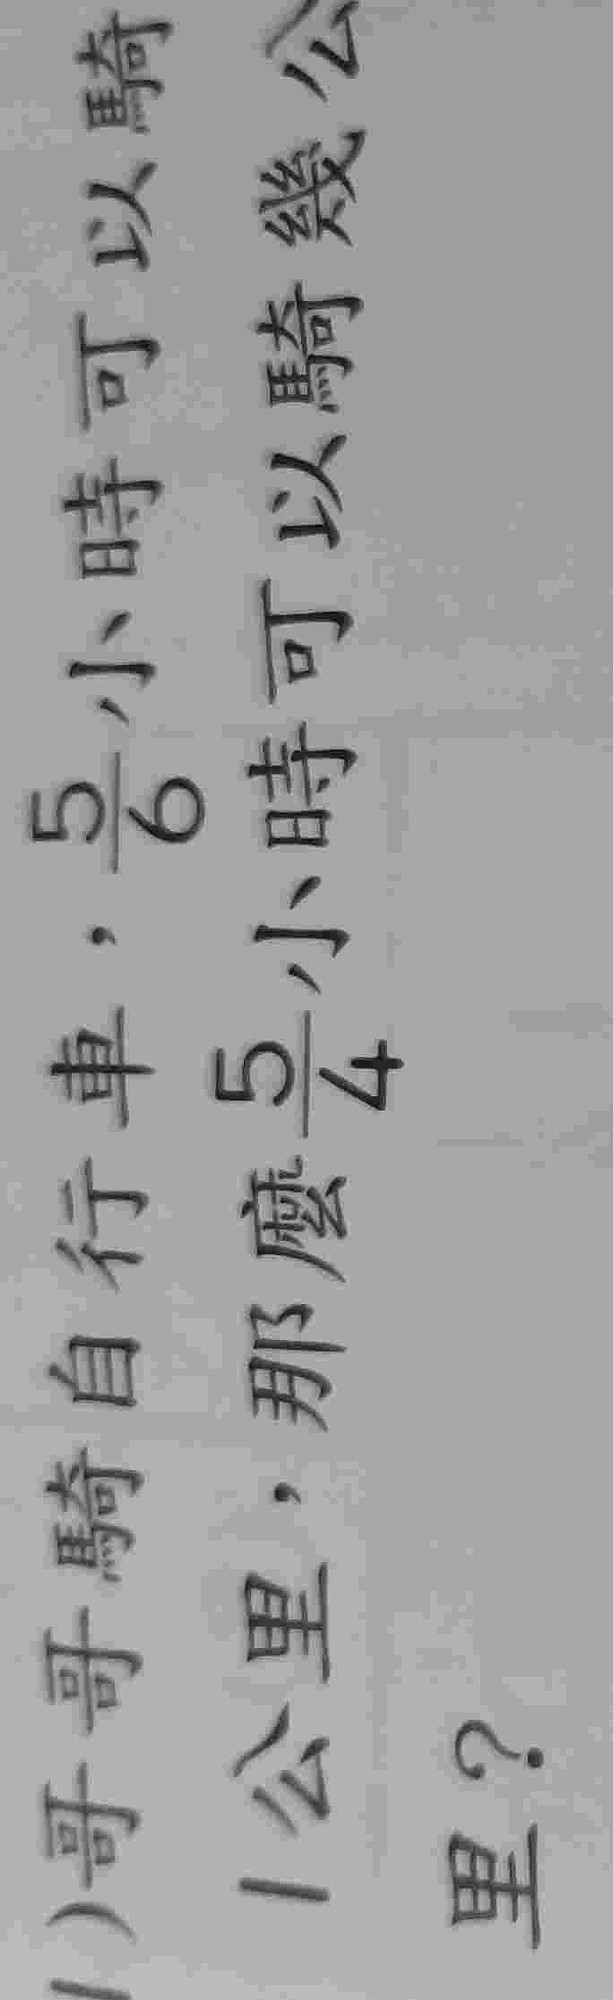 1)哥哥騎自行車，5/6小時可以騎
1公里，那麼5/4小時可以騎幾公
里？